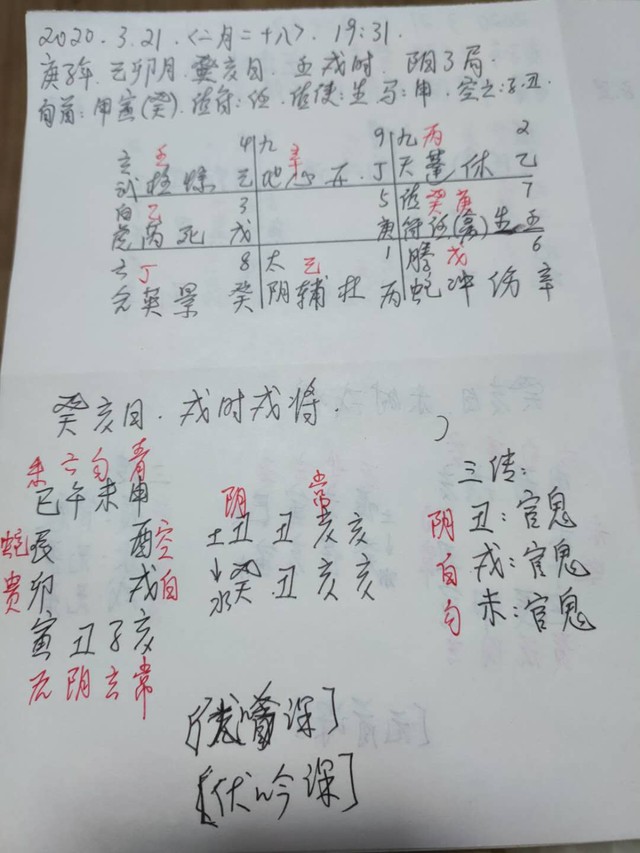 2020.3.21.〈二月二十八〉. 19:31.
庚子年. 己卯月. 癸亥日. 壬戌时 阴3局.
旬首: 甲寅(癸). 值符: 任. 值使: 生. 马: 申. 空亡: 子.丑.
玄 壬 4 九 辛 9 九 丙 2
武 柱 惊 乙 地 心 开 丁 天 蓬 休 乙
白 乙 3 5 值 癸 庚 7
虎 芮 死 戊 庚 符 任 生 壬
六 丁 8 太 己 1 腾 戊 6
合 英 景 癸 阴 辅 杜 丙 蛇 冲 伤 辛
癸亥日. 戌时戌将.
朱 六 勾 青
巳 午 未 申
蛇 辰 酉 空
贵 卯 戌 白
寅 丑 子 亥
后 阴 玄 常
阴 常
土 丑 丑 亥 亥
↓
水 癸 丑 亥 亥
三传:
阴 丑: 官鬼
白 戌: 官鬼
勾 未: 官鬼
[伏吟课]